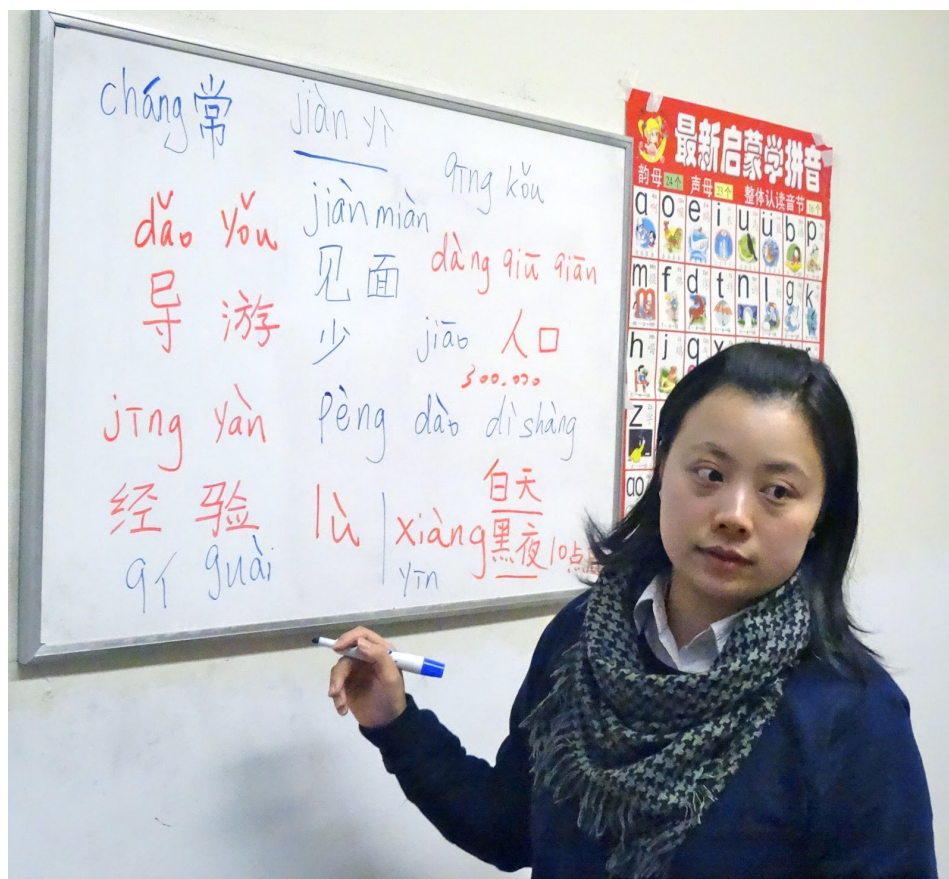 cháng 常 jiàn yì
qīng kǒu
jiàn miàn
dǎo yǒu
见面 dàng qiū qiān
导 游
少 jiāo 人口
300.000
jīng yàn pèng dào dì shàng
白天
经 验 lǜ xiàng 黑夜 10点
guài yīn
最新启蒙学拼音
韵母 24个 声母 23个 整体认读音节
a o e i u ü b p
m f d t n l g k
h j q x
z
ao